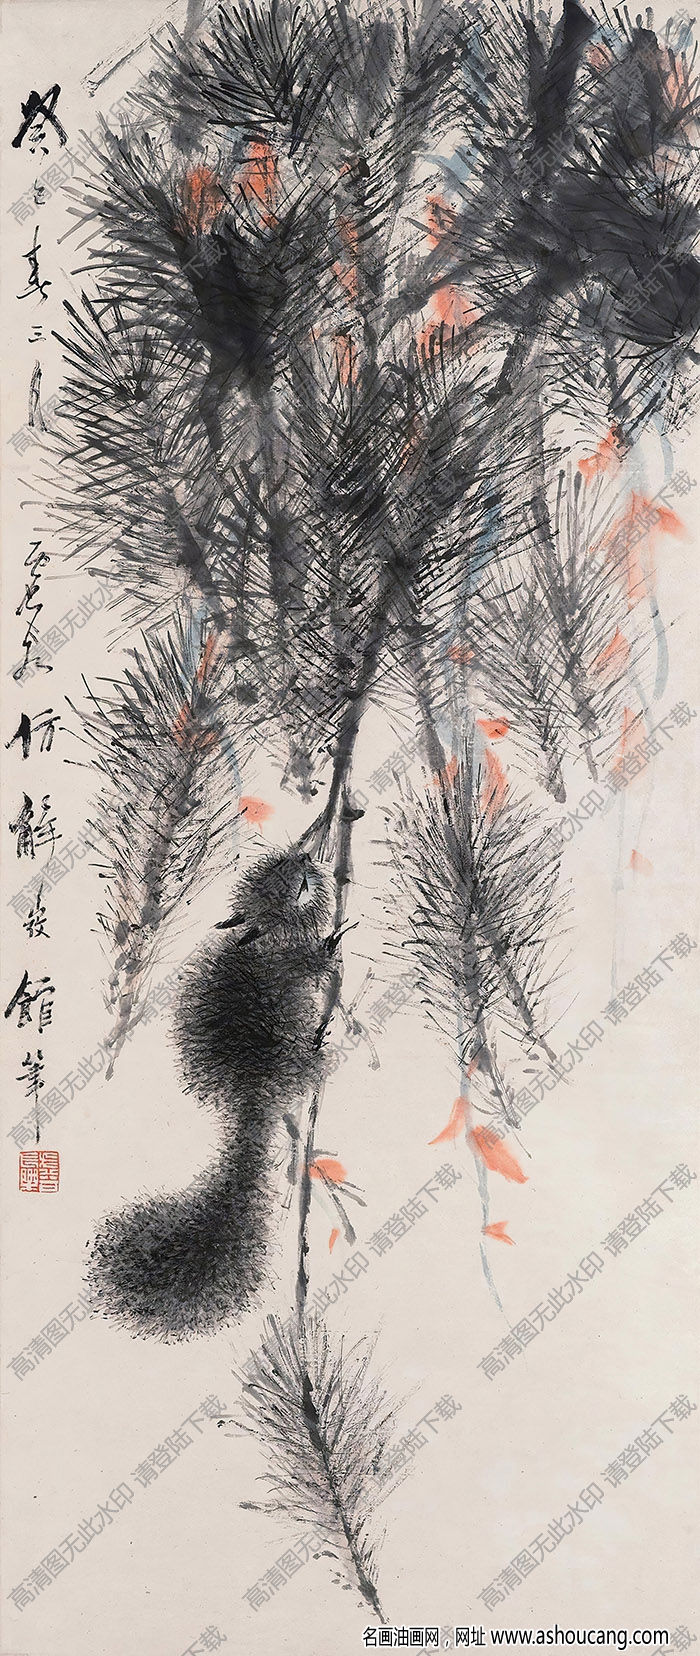 癸巳春三月
仿解弢館筆
高清图无此水印 请登陆下载
名画油画网，网址 www.ashoucang.com